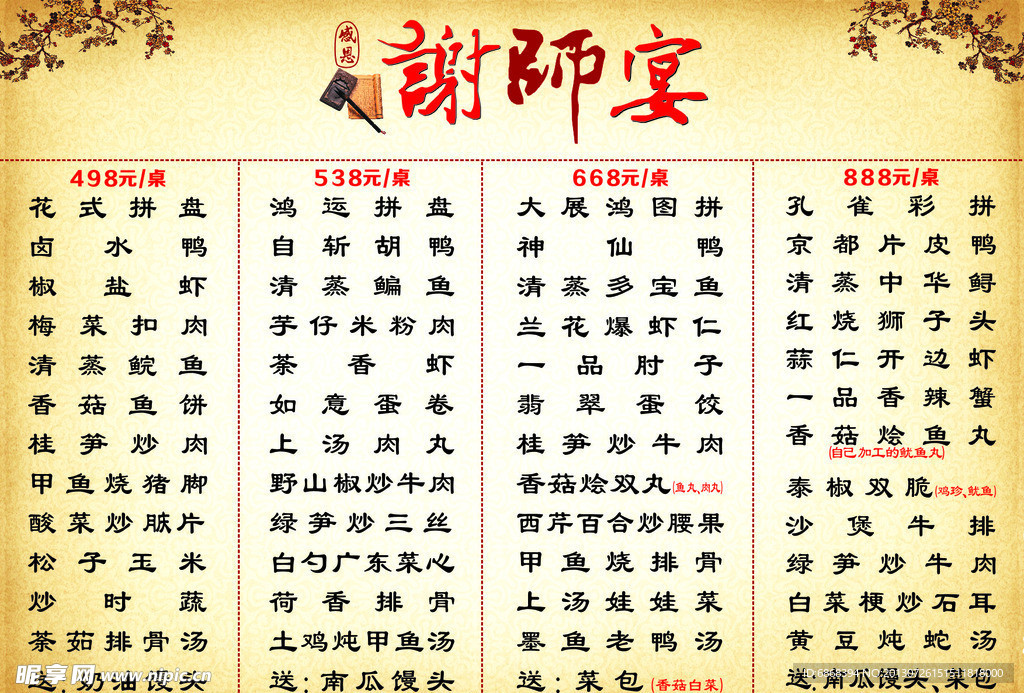 感恩
謝師宴
498元/桌
花式拼盘
卤水鸭
椒盐虾
梅菜扣肉
清蒸鲩鱼
香菇鱼饼
桂笋炒肉
甲鱼烧猪脚
酸菜炒胘片
松子玉米
炒时蔬
茶茹排骨汤
送:奶油馒头
538元/桌
鸿运拼盘
自斩胡鸭
清蒸鳊鱼
芋仔米粉肉
茶香虾
如意蛋卷
上汤肉丸
野山椒炒牛肉
绿笋炒三丝
白勺广东菜心
荷香排骨
土鸡炖甲鱼汤
送:南瓜馒头
668元/桌
大展鸿图拼
神仙鸭
清蒸多宝鱼
兰花爆虾仁
一品肘子
翡翠蛋饺
桂笋炒牛肉
香菇烩双丸(鱼丸、肉丸)
西芹百合炒腰果
甲鱼烧排骨
上汤娃娃菜
墨鱼老鸭汤
送:菜包(香菇白菜)
888元/桌
孔雀彩拼
京都片皮鸭
清蒸中华鲟
红烧狮子头
蒜仁开边虾
一品香辣蟹
香菇烩鱼丸
(自己加工的鱿鱼丸)
泰椒双脆(鸡珍、鱿鱼)
沙煲牛排
绿笋炒牛肉
白菜梗炒石耳
黄豆炖蛇汤
送:南瓜馒头、菜包
昵享网 www.nipic.cn